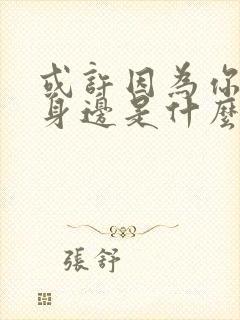 或許因為你
身邊是什麼
張舒